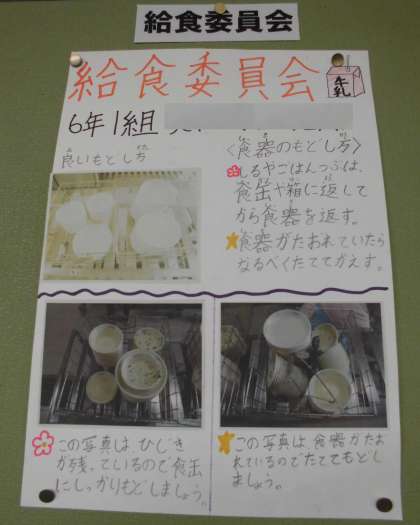 給食委員会
給食委員会
牛乳
6年1組
良いもどし方
〈食器のもどし方〉
しるやごはんつぶは、
食缶や箱に返して
から食器を返す。
食器がたおれていたら
なるべくたててかえす。
この写真は、ひじき
が残っているので食缶
にしっかりもどしましょう。
この写真は食器がたお
れているのでたててもどし
ましょう。